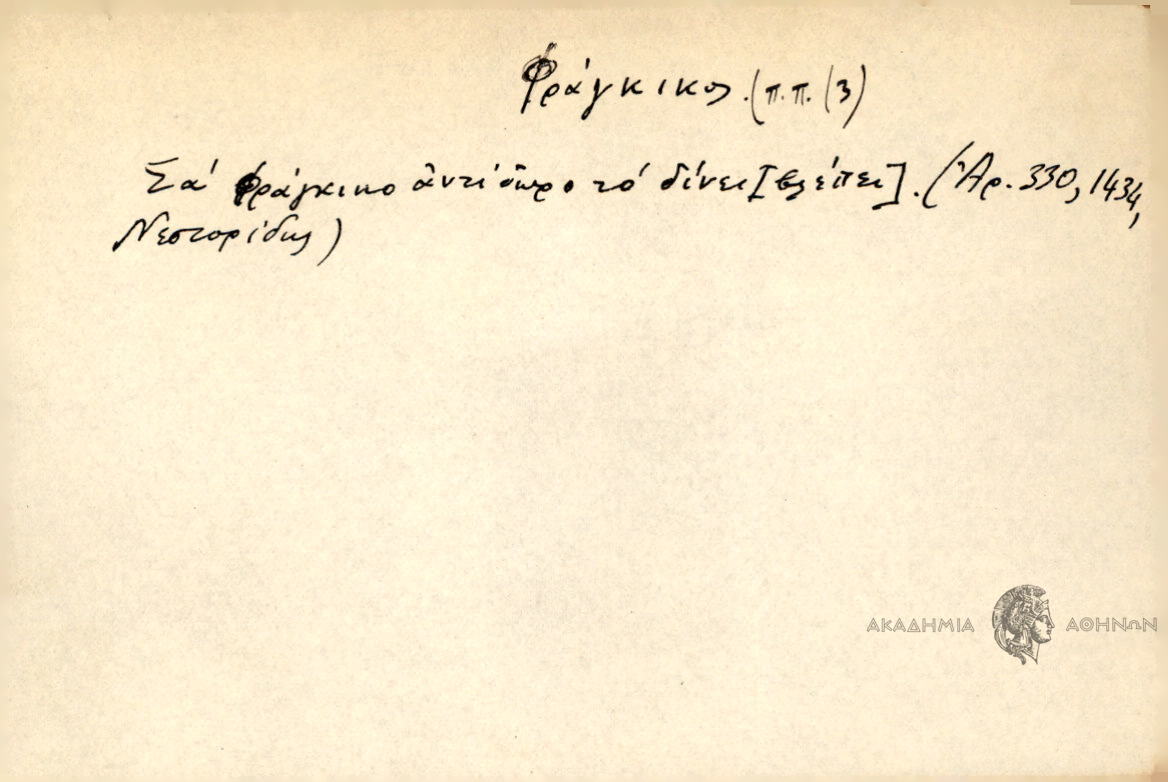 Φράγκικος. (π.π. (3)
Σα' φράγκικο ἀντίδωρο τό δίνει [βλέπει]. (Ἀρ. 330, 1434,
Νεστορίδης)
ΑΚΑΔΗΜΙΑ ΑΘΗΝΩΝ